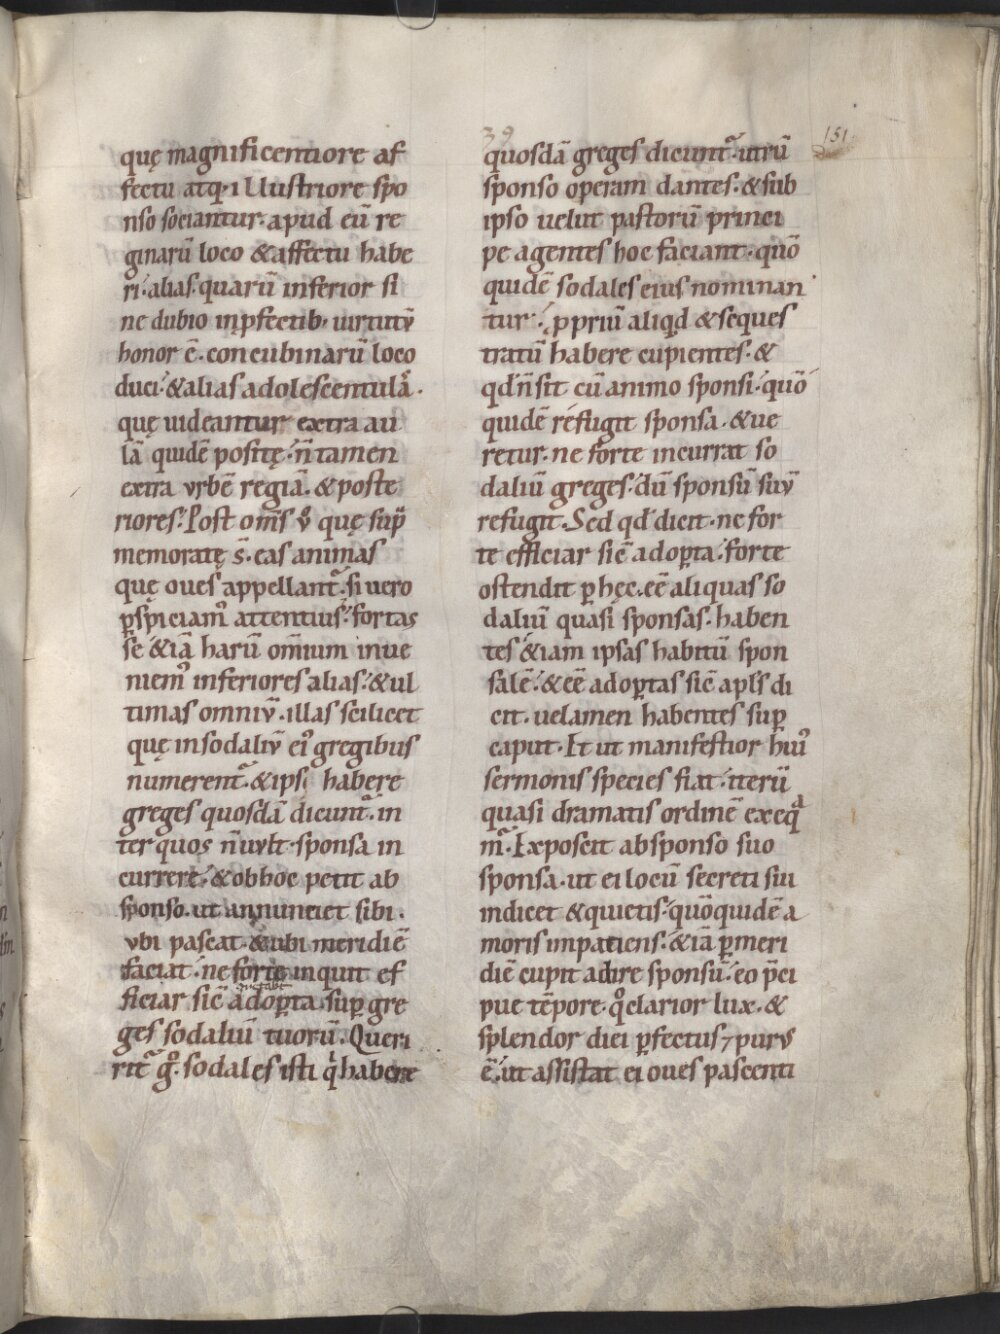 39
151.
quę magnificentiore af
fectu atq; illustriore spo
nso sociantur. apud eū re
ginarū loco & affectu habe
ri. alias. quarū inferior si
ne dubio in ꝓfectib; uirtutū
honor ē. concubinarū loco
duci. & alias adolescentulaꝝ.
quę uideantur extra au
lā quidē positę. n̄ tamen
extra vrbē regiā. & poste
riores. Post om̄s v̊ quę sup̄
memoratę s̄. eas animas
quę oues appellant᷑. si uero
ꝑspiciam᷒ attentius. fortas
se & iā harū om̄ium inue
niem᷒ inferiores alias. & ul
timas omniū. illas scilicet
quę in sodaliū ei᷒ gregibus
numerent᷑. & ipsi habere
greges quosdā dicunt᷑. in
ter quos n̄ uult sponsa in
currere. & ob hoc petit ab
sponso. ut annunciet sibi.
vbi pascat. & ubi meridiē
faciat. ne forte inquit ef
ficiar sic̄ adoꝑta. suꝑ gre
ges sodaliū tuorū. Queri
rit᷑ gͦ. sodales isti qͥ habere
quosdā greges dicunt᷑. utrū
sponso operam dantes. & sub
ipso uelut pastorū princi
pe agentes hoc faciant. quō
quidē sodales eius nominan
tur. ꝓpriū aliqd & seques
tratū habere cupientes. &
qd n̄ sit cū animo sponsi. quō
quidē refugit sponsa. & ue
retur. ne forte incurrat so
daliū greges. dū sponsū suū
refugit. Sed qd dicit. ne for
te efficiar sic̄ adoꝑta. forte
ostendit ꝑ hęc. eē aliquas so
daliū quasi sponsas. haben
tes & iam ipsas habitū spon
salē. & eē adoꝑtas sic̄ apls̄ di
cit. uelamen habentes suꝑ
caput. Et ut manifestior hui᷒
sermonis species fiat. iterū
quasi dramatis ordinē exeqͣ
m᷑. Exposcit ab sponso suo
sponsa. ut ei locū secreti sui
indicet & quietis. quō quidē a
moris impatiens. & iā ꝑ meri
diē cupit adire sponsū. eo p̄ci
pue tēpore. qͦ clarior lux. &
splendor diei ꝑfectus ⁊ purus
ē. ut assistat ei oues pascenti